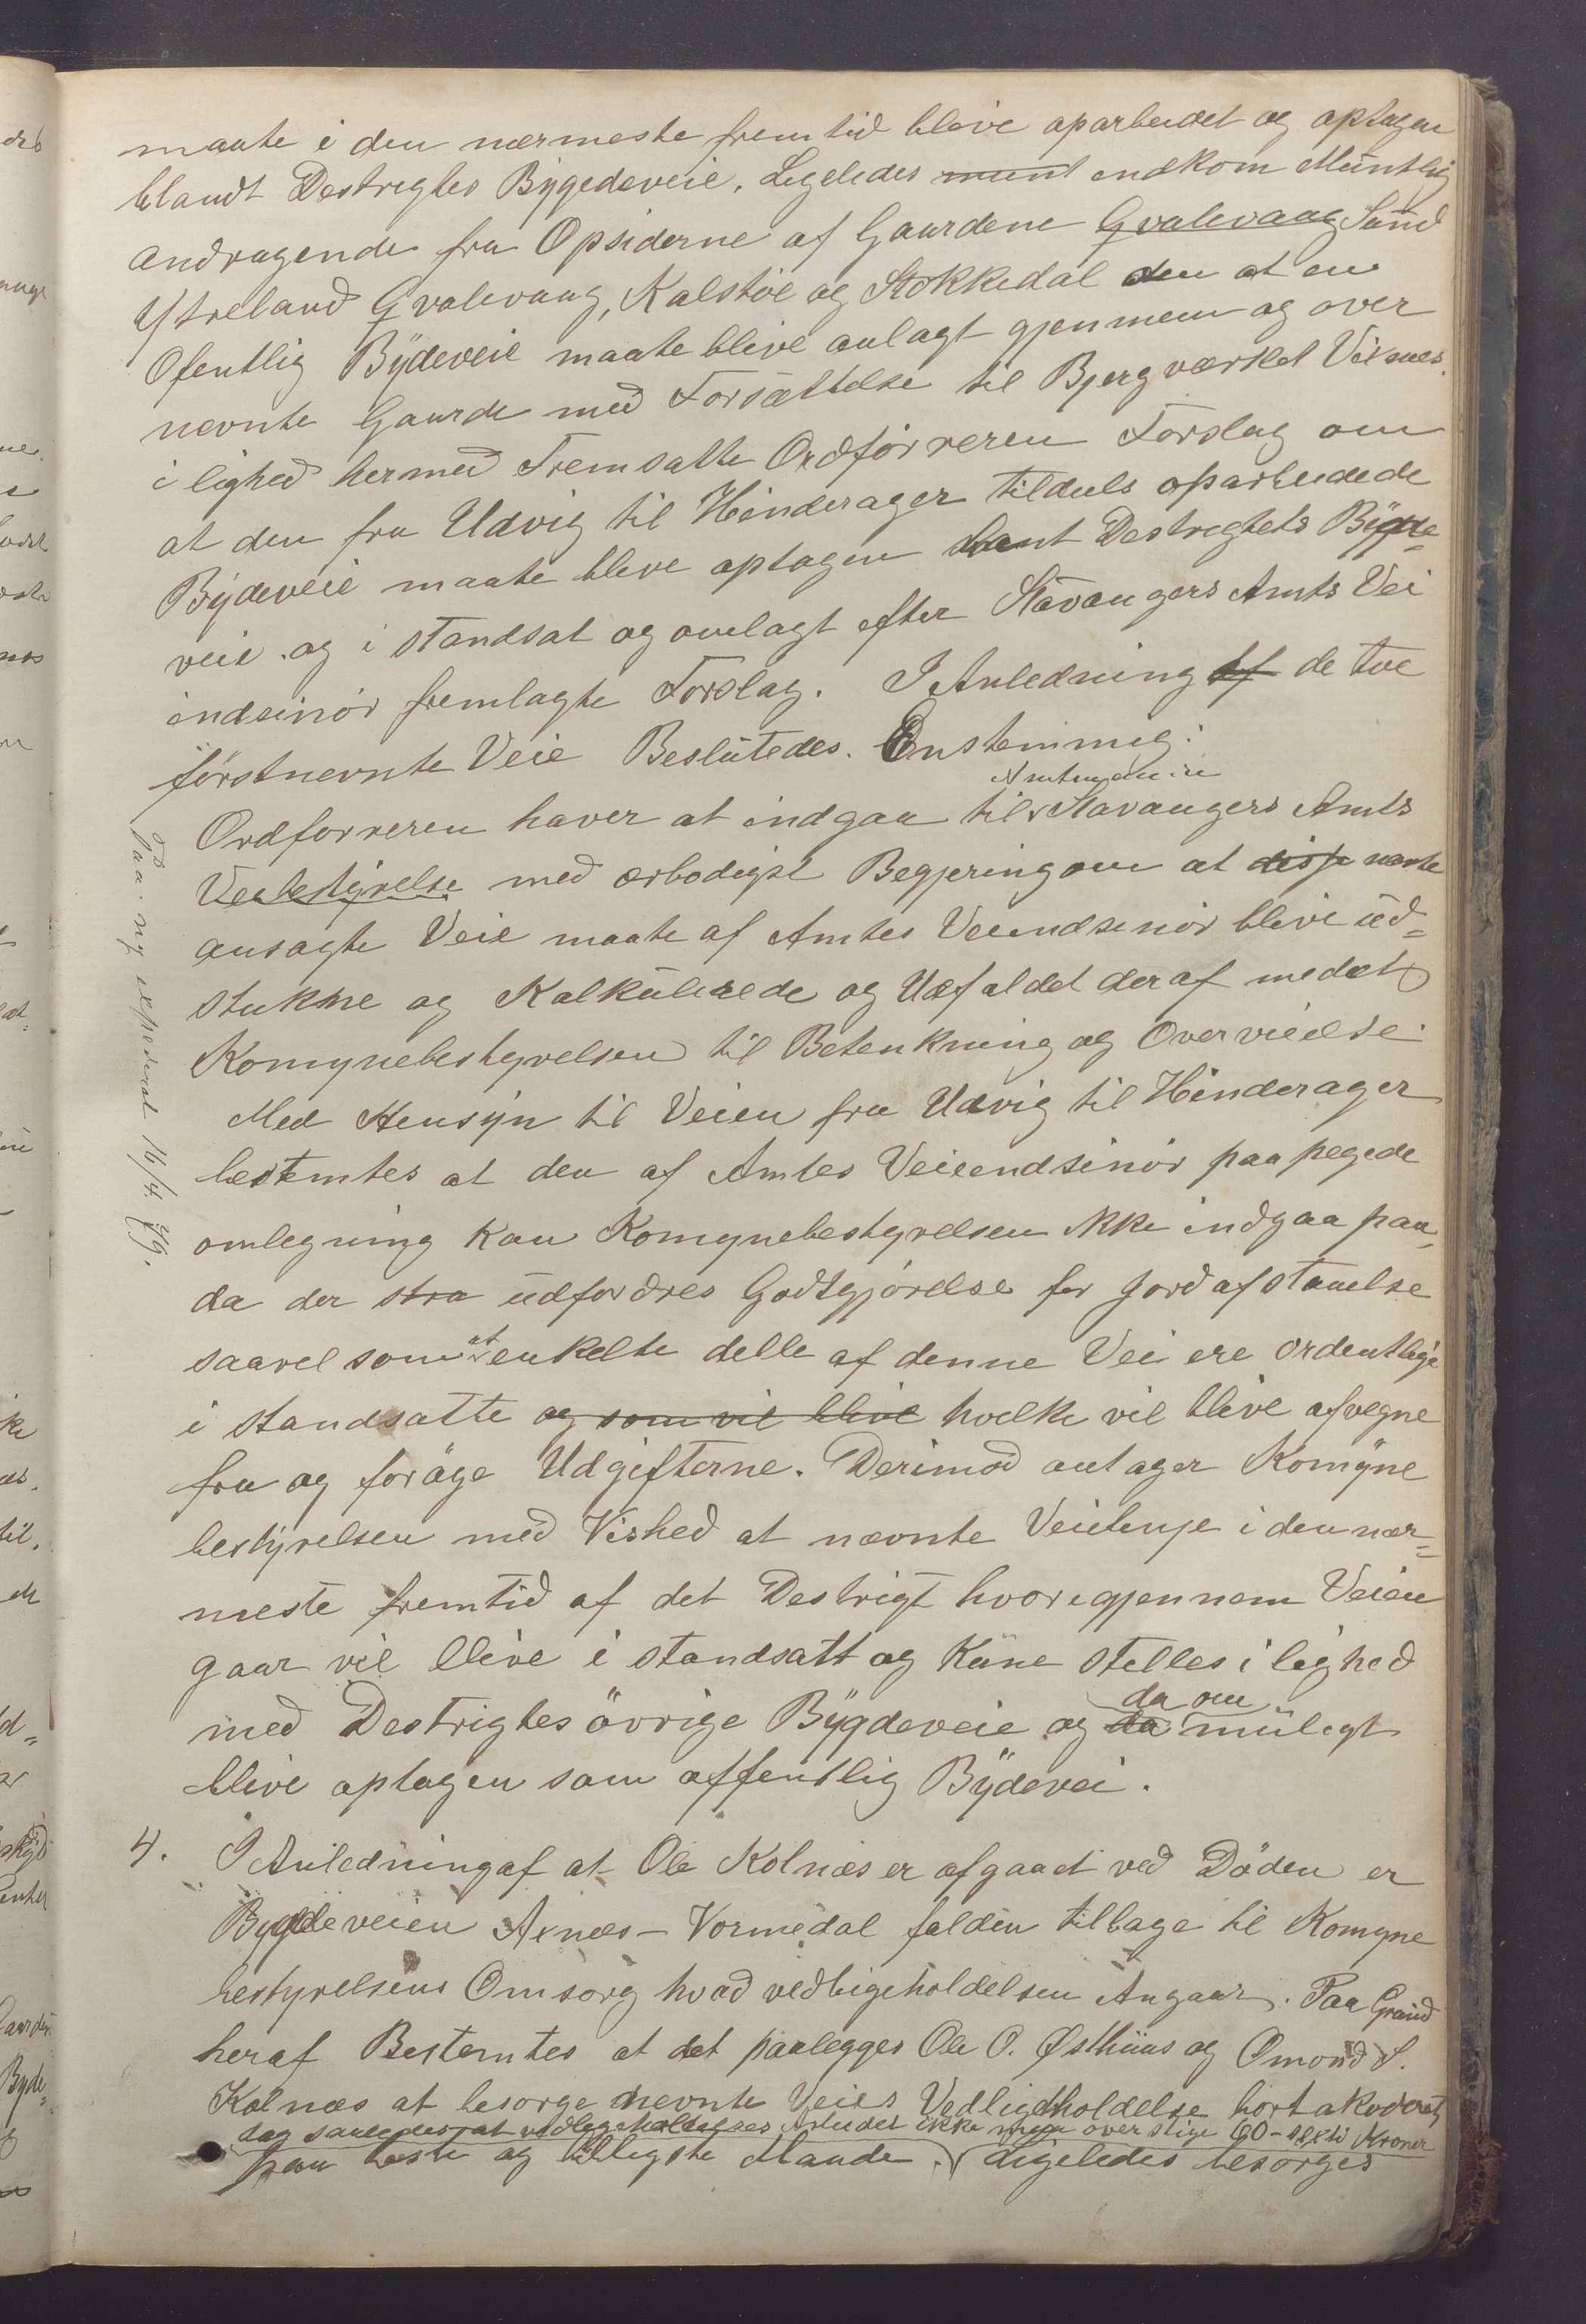 maate i den nærmeste fremtid blive oparbeidet og optagen
blandt Destrigtes Bygedeveie. Ligeledes mund endkom Muntlig
andragende fra Opsiderne af Gaardene Gvalevaag Sund
Ytreland Gvalevaag, Kalstöe og Stokkedal den at en
Ofentlig Bydeveie maate blive anlagt gjennem og over
nevnte Gaarde med Forsættelse til Bjergværket Visnes.
i lighed hermed Fremsatte Ordförreren Forslag om
at den fra Udvig til Hinderager tildels oparbeidede
Bydeveie maate bleve optagen blant Destrigtets Bygde-
veie og i standsat og omlagt efter Stavangers Amts Vei
indsinör fremlagte Forslag. I Anledning af de tve
förstnevnte Veie Beslutedes. Enstemmig:
Amtmanden
Ordforreren haver at indgaa til Stavangers Amts
Veibestyrelse med ærbodigst Begjering om at disse nevnte
ansagte Veie maate af Amtes Veiindsinör blive ud-
stukne og Kalkulerede og Udfaldet deraf meddelt
Komynebestyrelsen til Betenkning og Overveielse.
Med Hensyn til Veien fra Udvig til Hinderager
bestemtes at den af Amtes Veieendsinör paapegede
omlegning kan Komynebestyrelsen ikke indgaa paa,
da der stra udfordres Godtgjörelse for Jordafstaaelse
saavel som at enkelte delle af denne Vei ere ordentlige
i standsatte og som vil blive hvelke vil blive afvegne
fra og foröge Udgifterne. Derimod antager Komyne
bestyrelsen med Vished at nævnte Veilenje i den nær-
meste fremtid af det Destrigt hvorigjennem Veien
gaar vil blive i standsatt og Kune stelles i lighed
med Destrigtes övrige Bygdeveie og da da om muligt
blive optagen som offentlig Bydevei.
Paa ny expederet 16/4 79.
4. I Anledning af at Ole Kolnæs er afgaaet ved Döden er
Bygdeveien Axnæs - Vormedal falden tilbage til Komyne
bestyrelsens Omsorg hvad vedligeholdelsen Angaar. Paa Grund
heraf Bestemtes at det paalegges Ole O. Østhuus og Omond S.
Kolnæs at besorge nevnte Veies Vedligeholdelse bortakorderet
dog saaledes at vedligeholdelses Arbeidet ikke maa overstige 60 - sexti Kroner
paa beste og billigste Maade. Ligeledes besorges